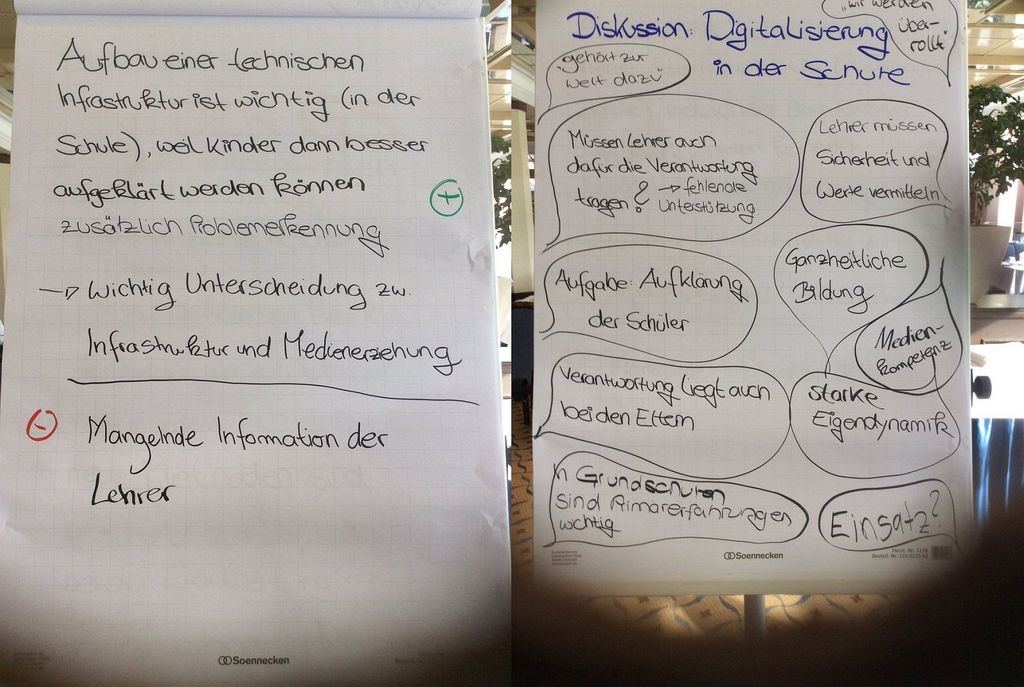 Aufbau einer technischen
Infrastruktur ist wichtig (in der
Schule), weil Kinder dann besser
aufgeklärt werden können
+
zusätzlich Problemerkennung
→ wichtig Unterscheidung zw.
Infrastruktur und Medienerziehung
-
Mangelnde Information der
Lehrer
Soennecken
Diskussion: Digitalisierung
in der Schule
"wir werden
über-
rollt"
"gehört zur
Welt dazu"
Müssen Lehrer auch
dafür die Verantwortung
tragen? → fehlende
Unterstützung
Lehrer müssen
Sicherheit und
Werte vermitteln
Aufgabe: Aufklärung
der Schüler
Ganzheitliche
Bildung
Medien-
kompetenz
Verantwortung liegt auch
bei den Eltern
starke
Eigendynamik
In Grundschulen
sind Primärerfahrungen
wichtig
Einsatz?
Soennecken